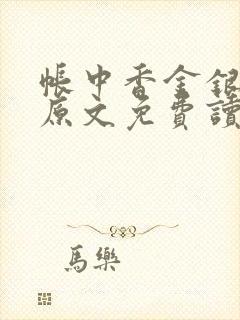 帳中香金銀
原文免費讀
馬樂